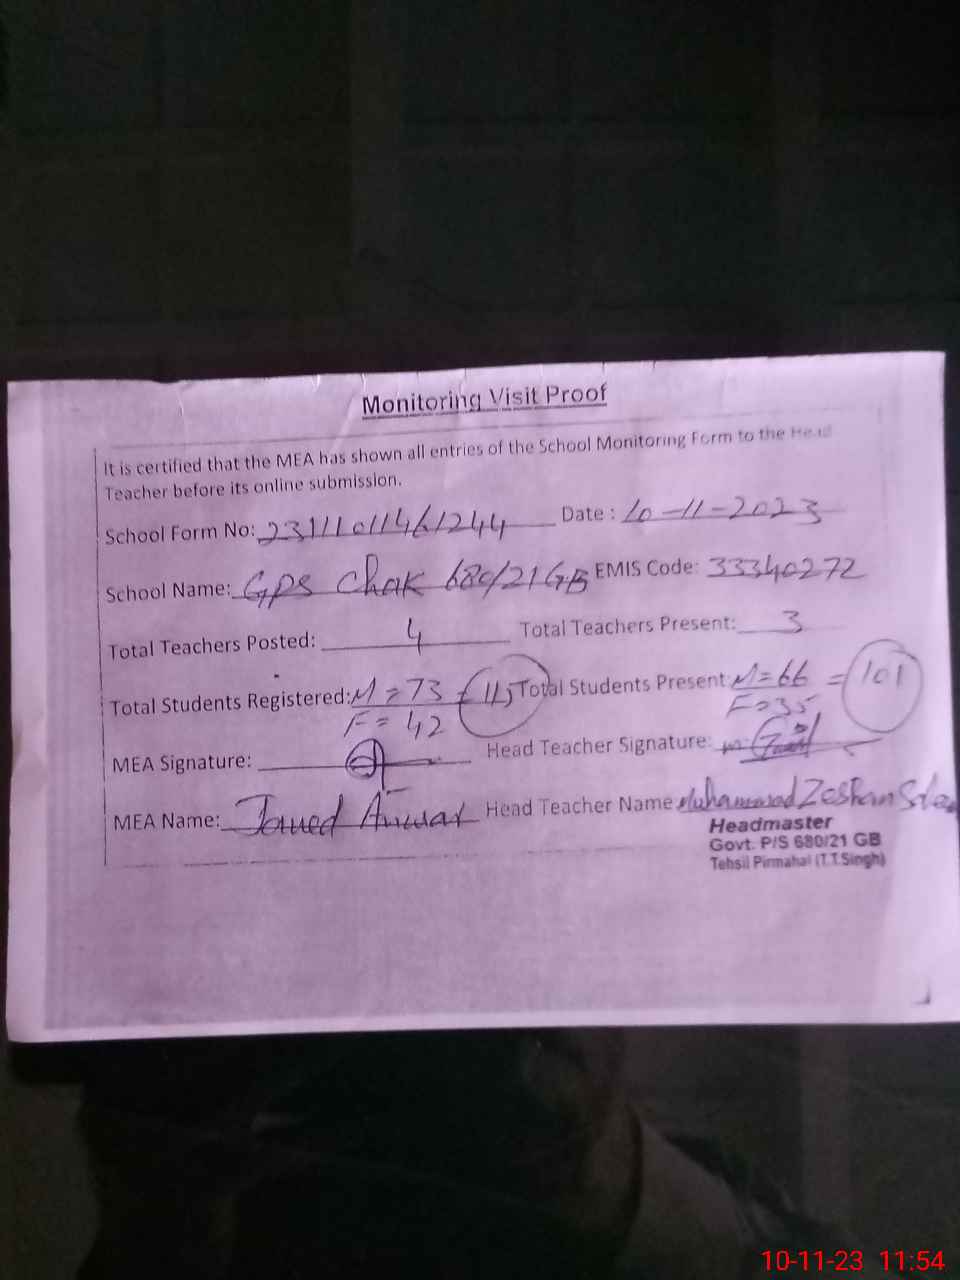 Monitoring Visit Proof
It is certified that the MEA has shown all entries of the School Monitoring Form to the Head
Teacher before its online submission.
School Form No: 23111011461244 Date : 10-11-2023
School Name: GPS Chak 680/21 GB EMIS Code: 33340272
Total Teachers Posted: 4 Total Teachers Present: 3
Total Students Registered: M = 73 = 115 Total Students Present M = 66 = 101
F = 42 F = 35
MEA Signature: Head Teacher Signature:
MEA Name: Javed Anwar Head Teacher Name Muhammad Zeshan
Headmaster
Govt. P/S 680/21 GB
Tehsil Pirmahal (T.T.Singh)
10-11-23 11:54